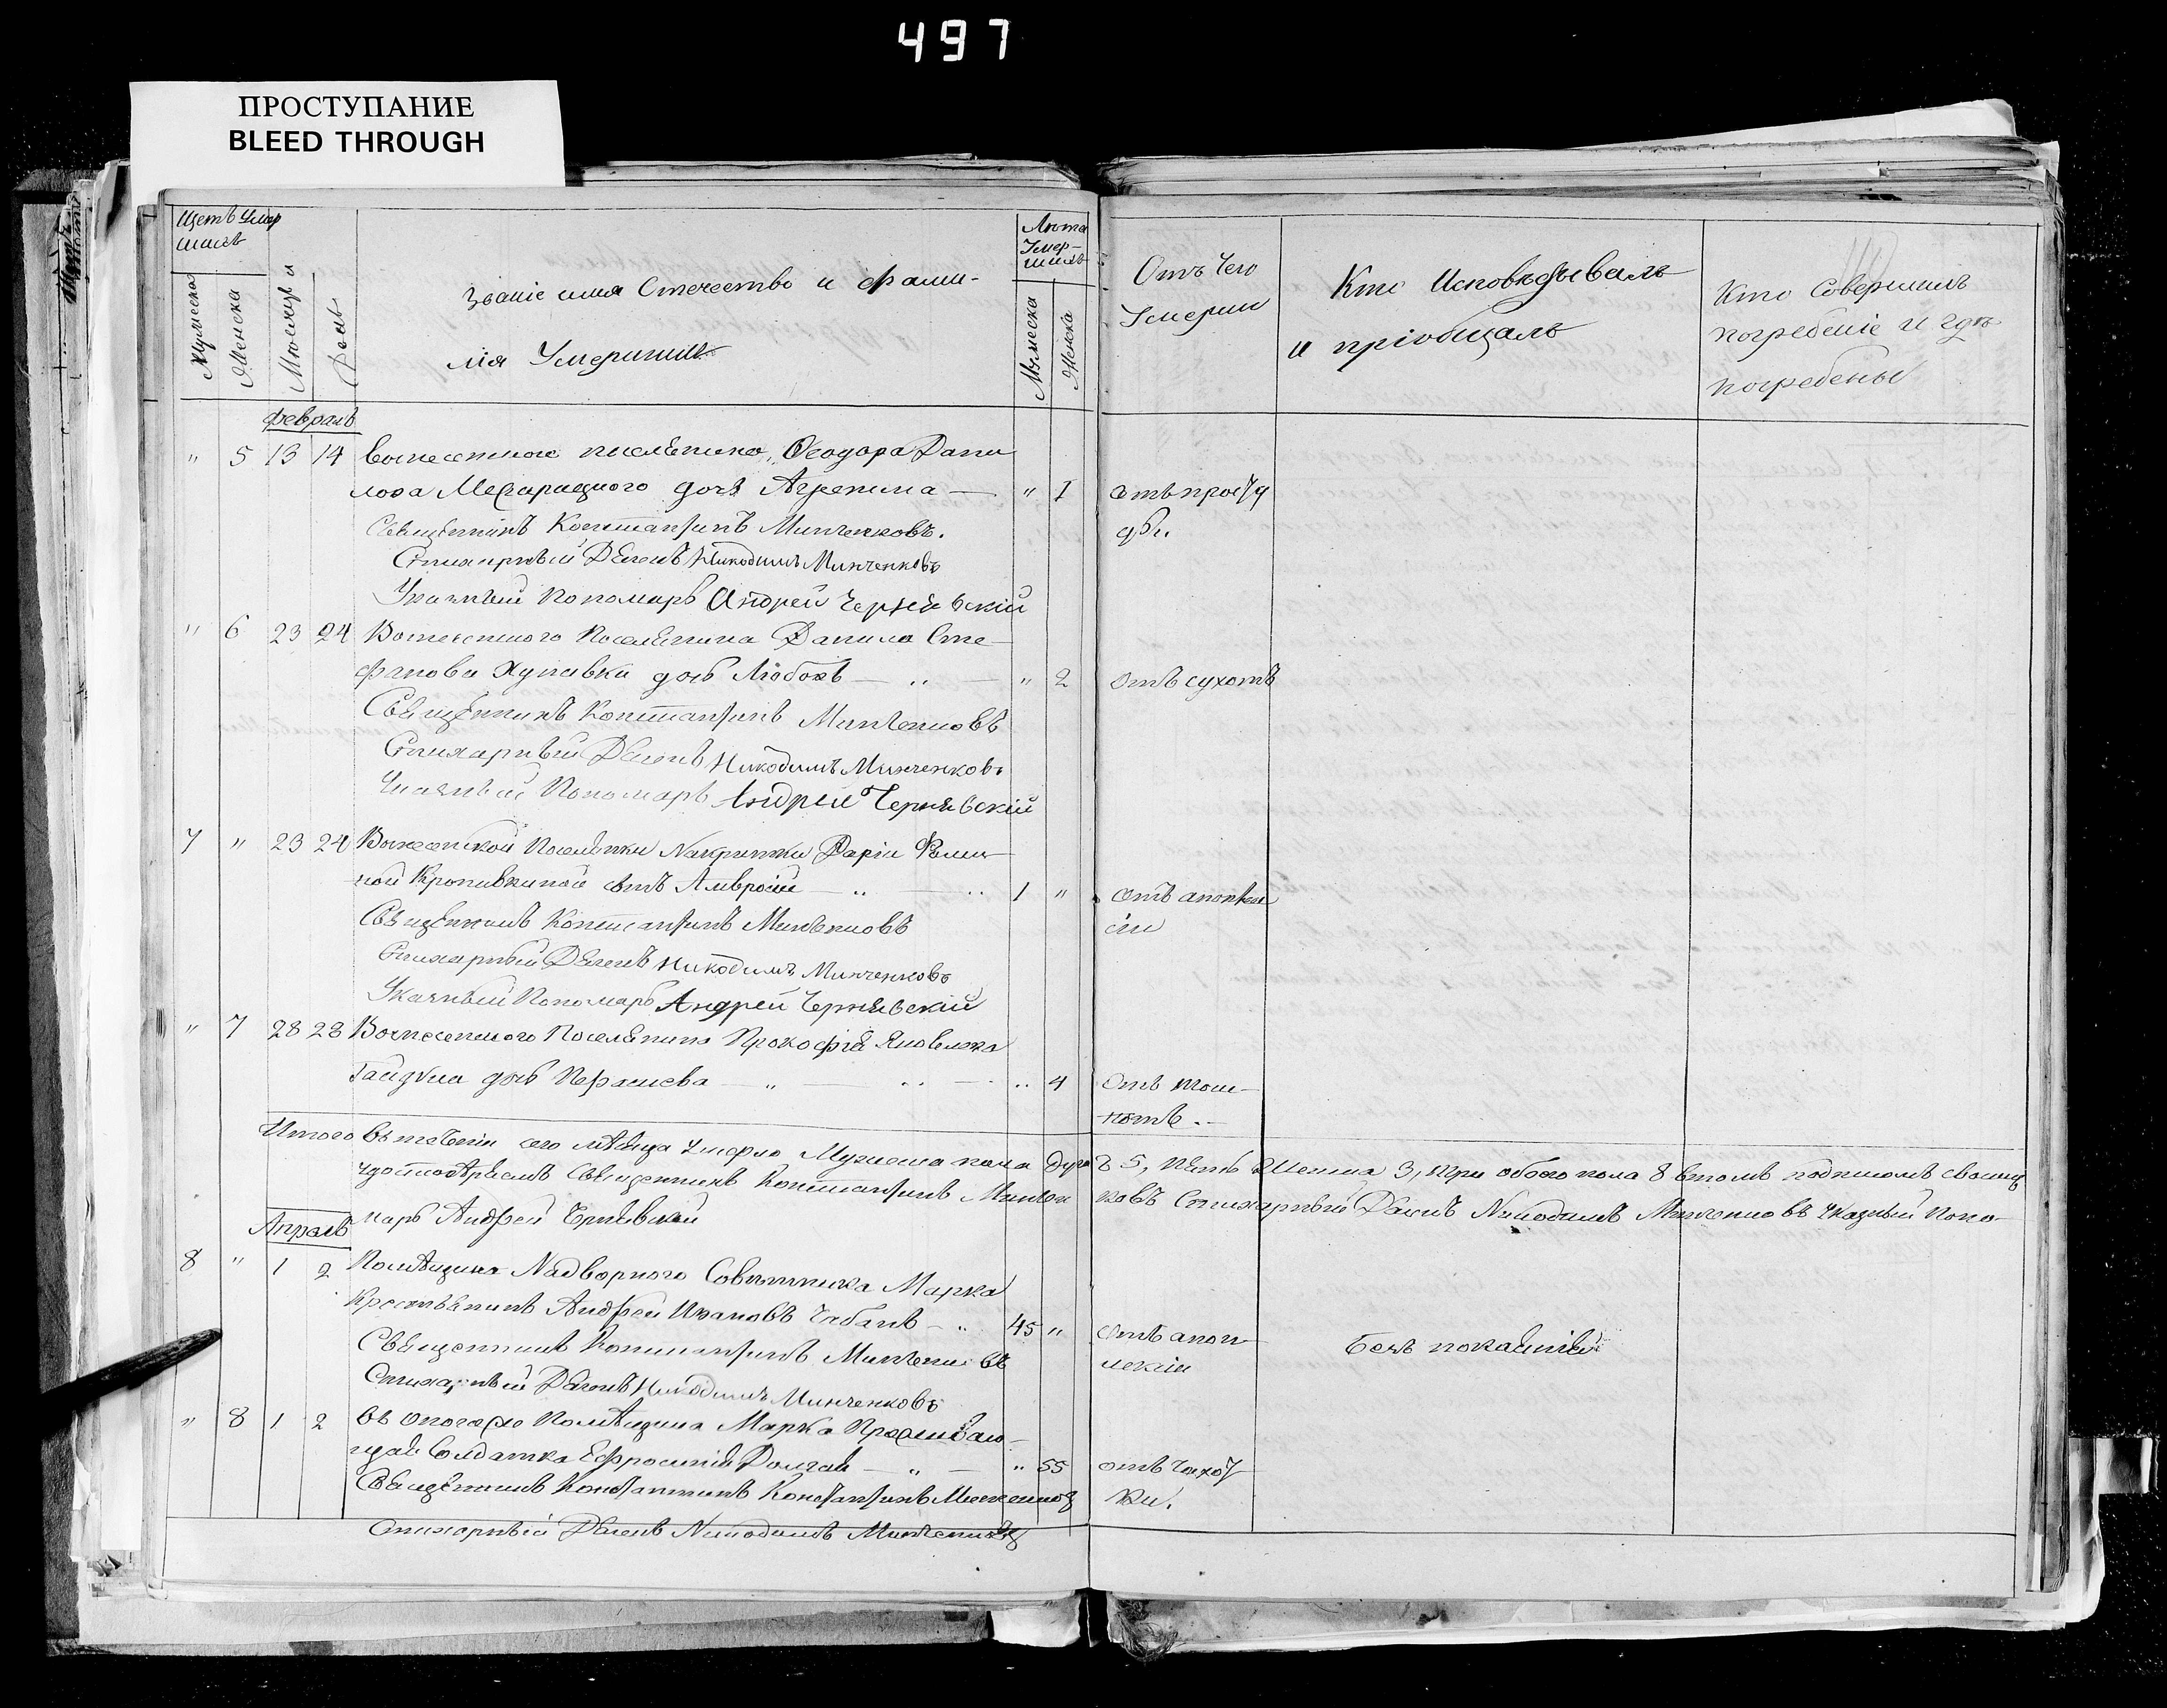 497
ПРОСТУПАНИЕ
BLEED THROUGH
Щетъ Умер
шихъ
Мужеска
Женска
Мѣсяцъ и
День
Званіе имя Отечество и фами-
лія Умершихъ
Лѣта
Умер-
шихъ
Мужеска
Женска
Отъ Чего
Умерли
Кто Исповѣдывалъ
и пріобщалъ
Кто Совершилъ
погребеніе и гдѣ
погребены
Февраль
" 5 13 14 Вознесенского поселянина Ѳеодора Дани
лова дочь Агрепина — " 1 отъ просту
ды.
Священникъ Константинъ Минченковъ.
Стихарный Дьячекъ Никодимъ Минченковъ
Указный Пономарь Андрей Чернявскій
" 6 23 24 Вознесенского Поселянина Данила Сте-
фанова дочь Любовь — " — " 2 отъ сухотъ
Священникъ Константинъ Минченковъ
Стихарный Дьячекъ Никодимъ Минченковъ
Указный Пономарь Андрей Чернявскій
7 " 23 24 Вознесенской Поселянки Дарiи
сынъ Амвросій — " — 1 " отъ апоплек
сіи
Священникъ Константинъ Минченковъ
Стихарный Дьячекъ Никодимъ Минченковъ
Указный Пономарь Андрей Чернявскій
" 7 28 28 Вознесенского Поселянина Прокофія Яковлева
дочь — " — " 4 Отъ тош-
нотъ.-
Итого въ теченіи сего мѣсяца Умерло Мужеска пола 5, пять Женска 3, три обоего пола 8 въ томъ подписомъ своимъ
удостовѣряемъ Священникъ Константинъ Минчен ковъ Стихарный Дьячекъ Никодимъ Минченковъ Указный Поно-
марь Андрей Чернявскій
Апрѣль
8 " 1 2 Помѣщика Надворного Совѣтника Марка
Крестьянинъ Андрей Ивановъ Чабанъ — " 45 " отъ апоп-
лексіи Безъ покаянія
Священникъ Константинъ Минченковъ
Стихарный Дьячекъ Никодимъ Минченковъ
" 8 1 2 Помѣщика Марка Проживаю-
щая Солдатка Ефросинія — " — " 55 отъ чахот
ки.
Священникъ Константинъ Константинъ Минченковъ
Стихарный Дьячекъ Никодимъ Минченковъ